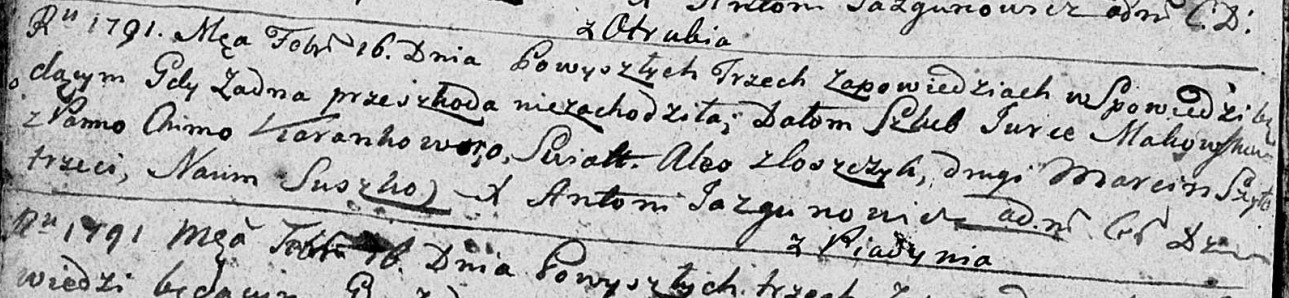 X Antoni Jazgunowicz adm C. D:
z Otrubia
Ru 1791. Mca Febr 16. Dnia Powyszłych Trzech Zapowiedziach w Spowiedzi bę
dącym Gdy Żadna przeszkoda niezachodziła; Dałom Szlub Jurce
z Panno Chimo Taranhowno, Swiatk. Aleo złoszczyk, drugi Marcin
trzeci, Naum Suszko) X Antoni Jazgunowicz adm
z Piadynia
Ru 1791 Mca Febr 16. Dnia Powyszłych trzech
wiedzi będącym